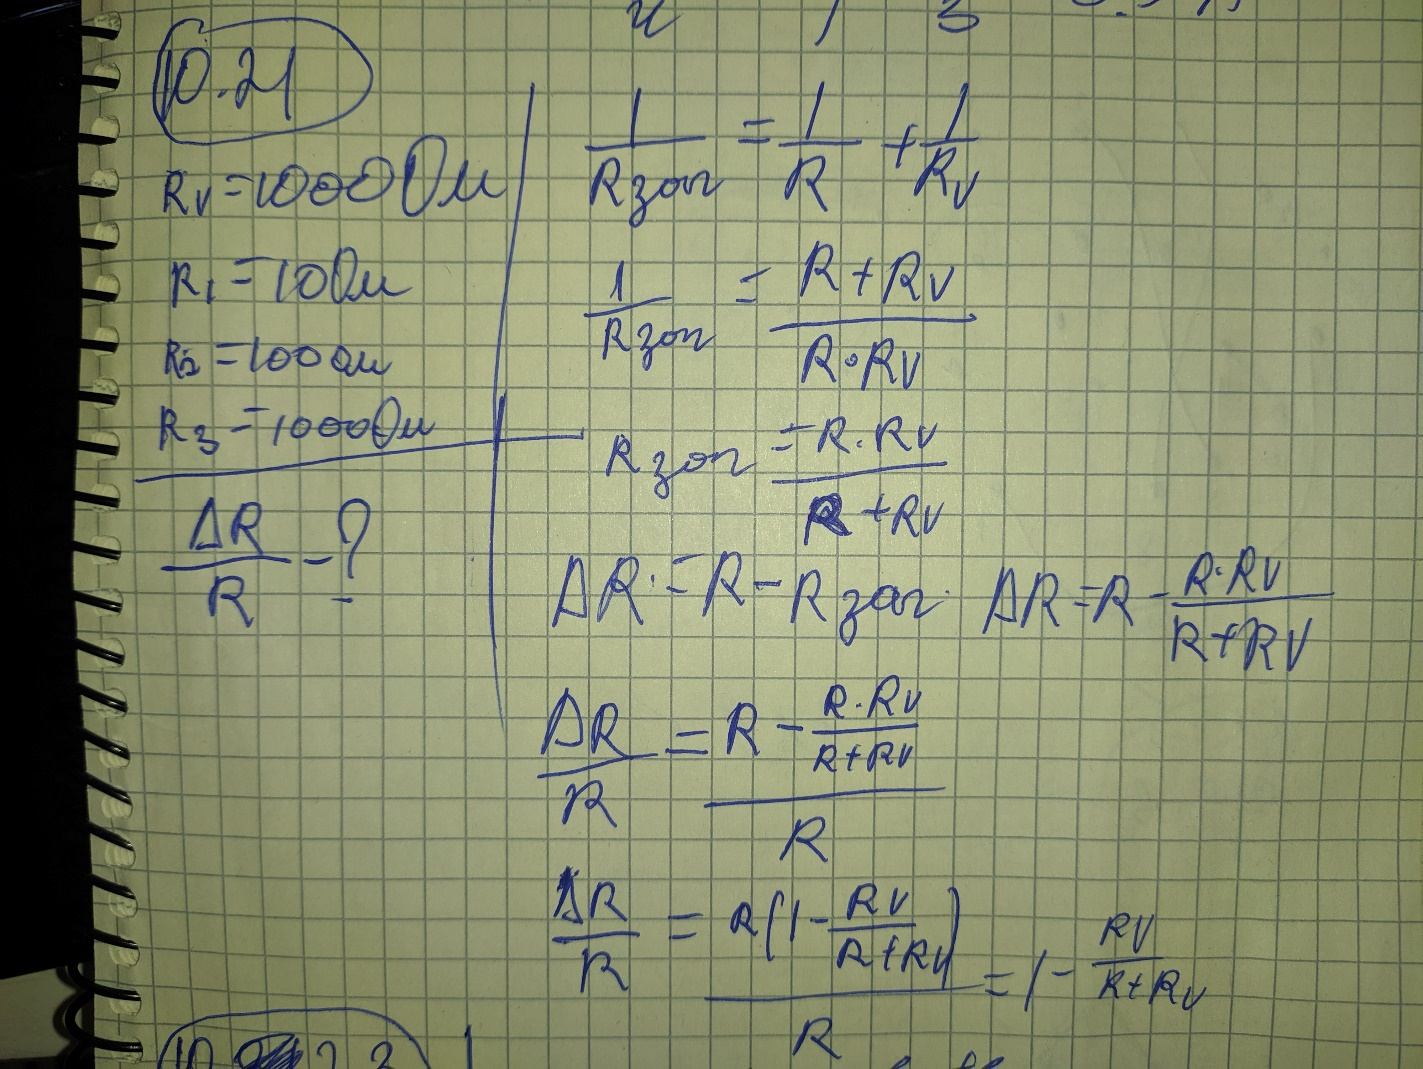 10.21
Rv = 1000 Ом
R1 = 10 Ом
R2 = 100 Ом
R3 = 1000 Ом
ΔR/R - ?
1/Rзаг = 1/R + 1/Rv
1/Rзаг = (R + Rv)/(R · Rv)
Rзаг = (R · Rv)/(R + Rv)
ΔR = R - Rзаг. ΔR = R - (R · Rv)/(R + Rv)
ΔR/R = (R - (R · Rv)/(R + Rv))/R
ΔR/R = (R(1 - Rv/(R + Rv)))/R = 1 - Rv/(R + Rv)